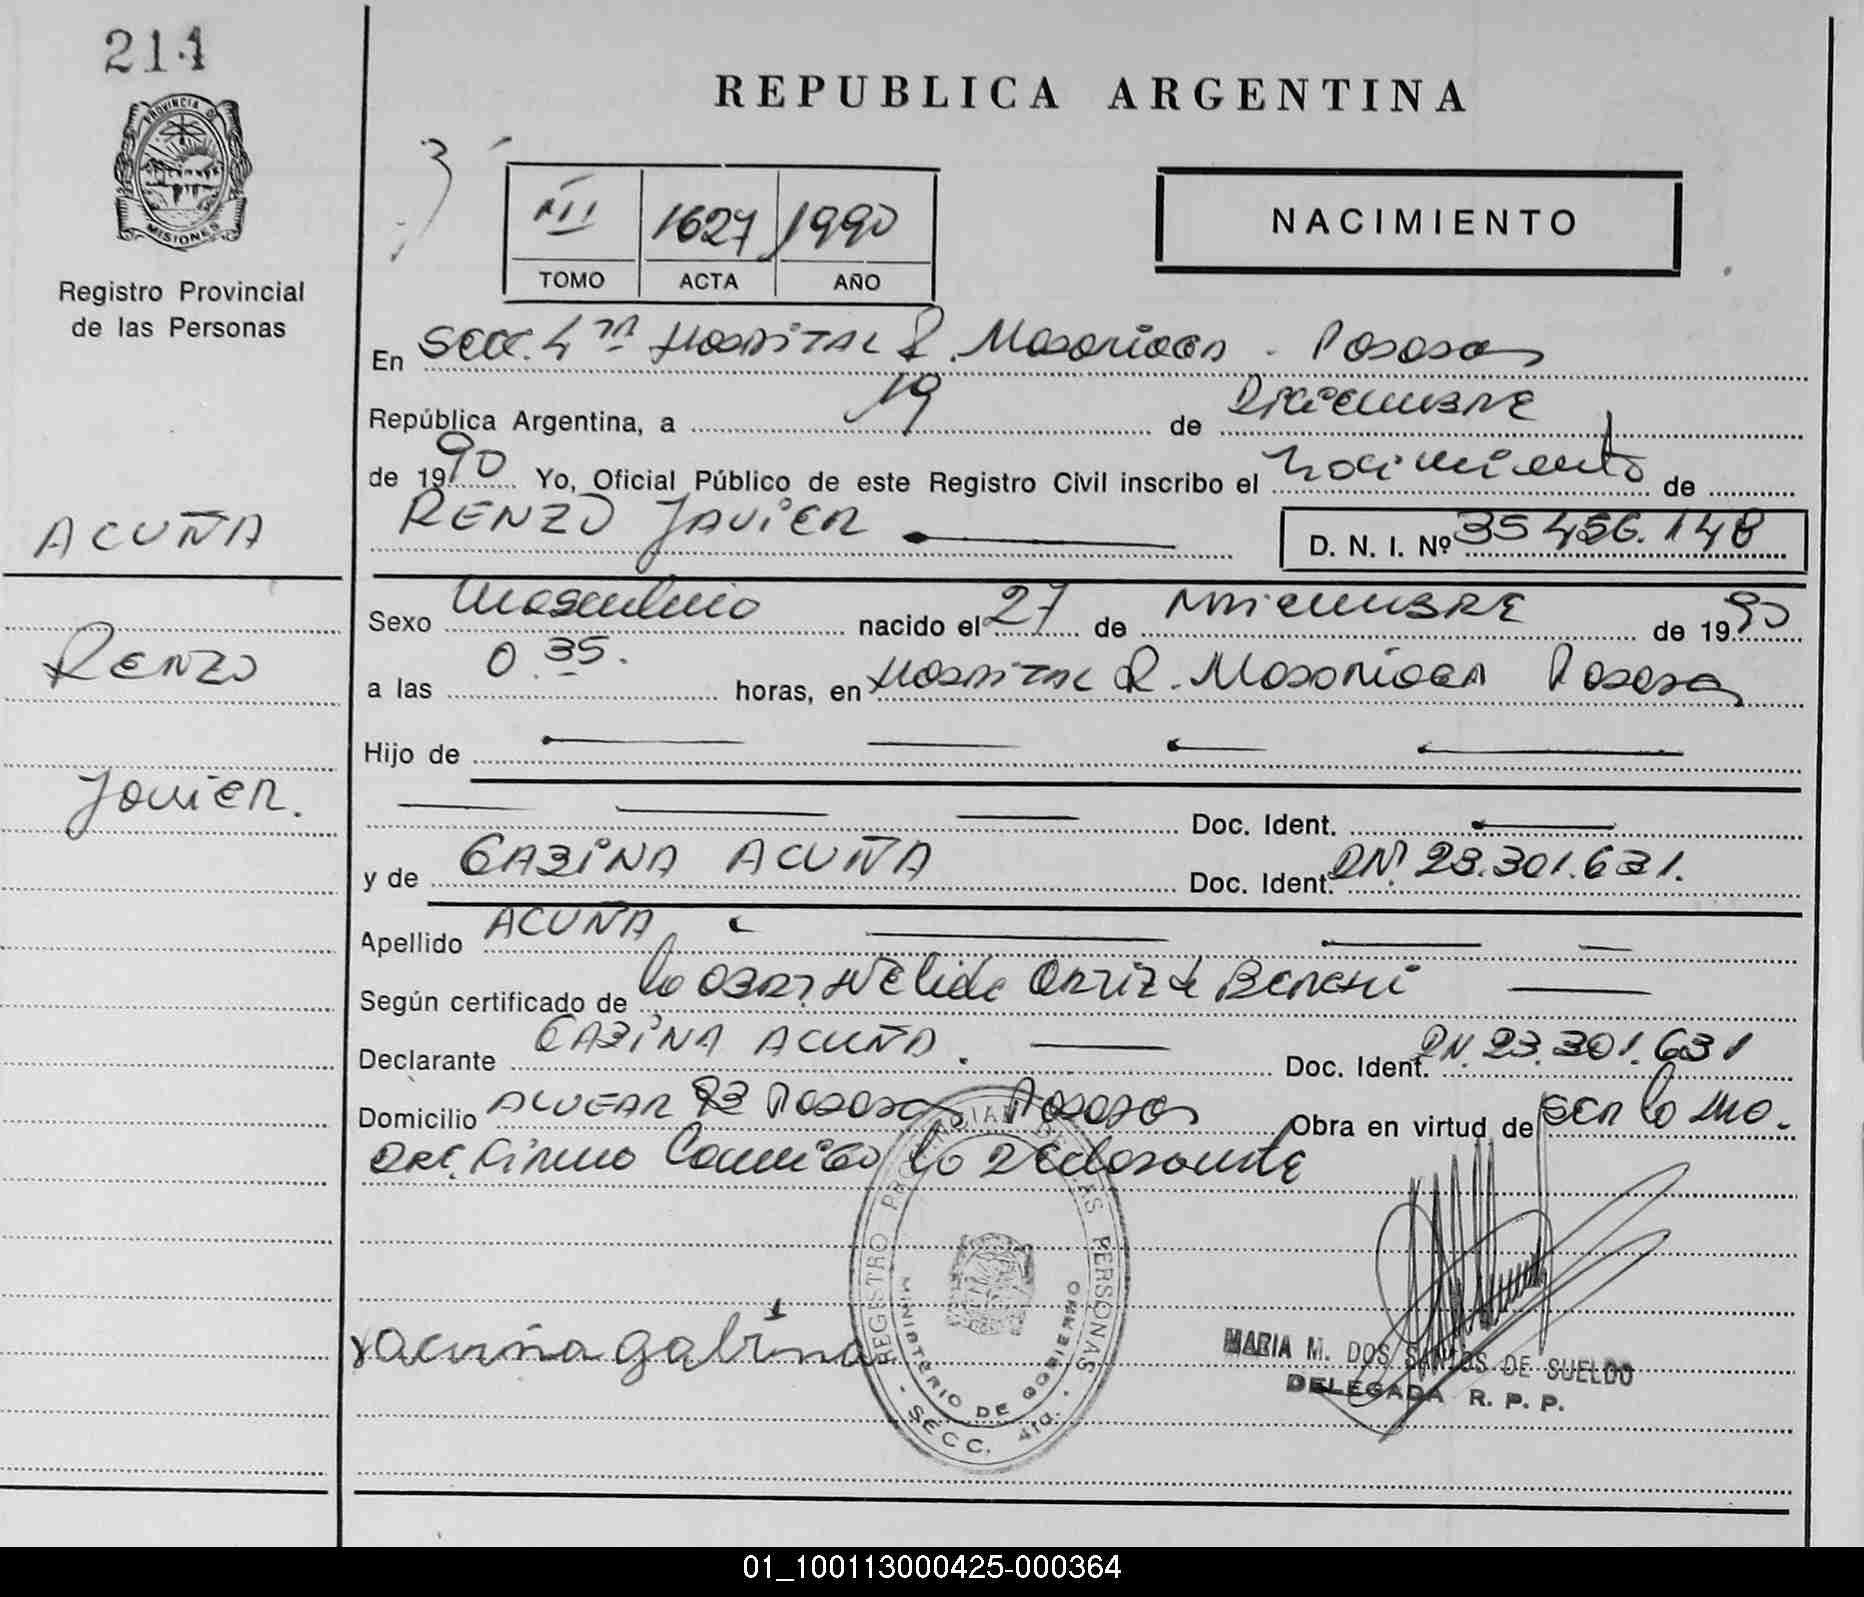 214
PROVINCIA DE
MISIONES
Registro Provincial
de las Personas
REPUBLICA ARGENTINA
III 1627 1990
TOMO ACTA AÑO
NACIMIENTO
En Secc. 4ta Hospital R. Madariaga - Posadas
República Argentina, a 19 de Diciembre
de 1990 Yo, Oficial Público de este Registro Civil inscribo el Nacimiento de
RENZO JAVIER
D. N. I. Nº 35.456.148
ACUÑA
RENZO
Javier.
Sexo Masculino nacido el 27 de Noviembre de 1990
a las 0.35. horas, en Hospital R. Madariaga Posadas
Hijo de
Doc. Ident.
y de GABINA ACUÑA Doc. Ident. DNI 23.301.631.
Apellido ACUÑA
Según certificado de la Obst. Nelida Ortiz de
Declarante GABINA ACUÑA. Doc. Ident. DNI 23.301.631
Domicilio ALVEAR Posadas Obra en virtud de ser la ma.
dre. Firma Conmigo la Declarante
acuña gabina
REGISTRO PROVINCIAL DE LAS PERSONAS
MINISTERIO DE GOBIERNO
SECC. 4ta.
MARIA M. DOS SANTOS DE SUELDO
DELEGADA R. P. P.
01_100113000425-000364